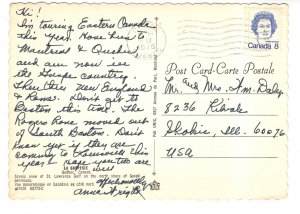 Hi!
I'm touring Eastern Canada
this year. Have been to
Montreal & Quebec
and am now in
the Gaspe country.
Then thru New England
& Home. Didn't get to
Boston this time. The
Rogers have moved out
of South Boston. Don't
know yet if they are
coming to Louisville this
year. Hope you two are
well
Affectionately
Anna Wright
LA GASPESIE
Quebec, Canada
Scenic view of St. Lawrence Gulf on the north shore of
Vue panoramique en Gaspésie du côté nord.
Post Card-Carte Postale
Canada 8
Mr. and Mrs. F.M. Daly
8236
Skokie, Ill. 60076
USA